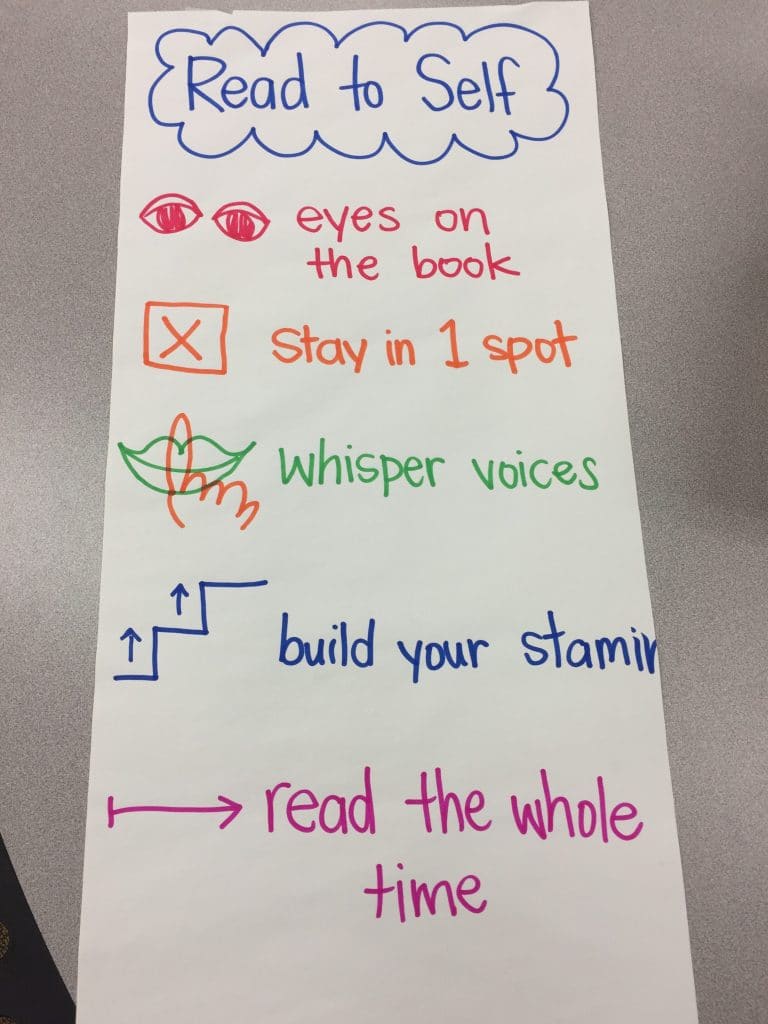 Read to Self
eyes on
the book
X
Stay in 1 spot
Whisper voices
build your stamin
read the whole
time